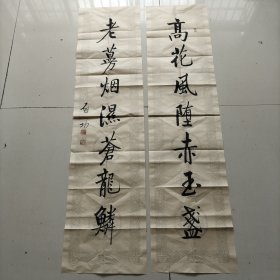 高花風堕赤玉盞
老蔓烟濕蒼龍鱗
启功